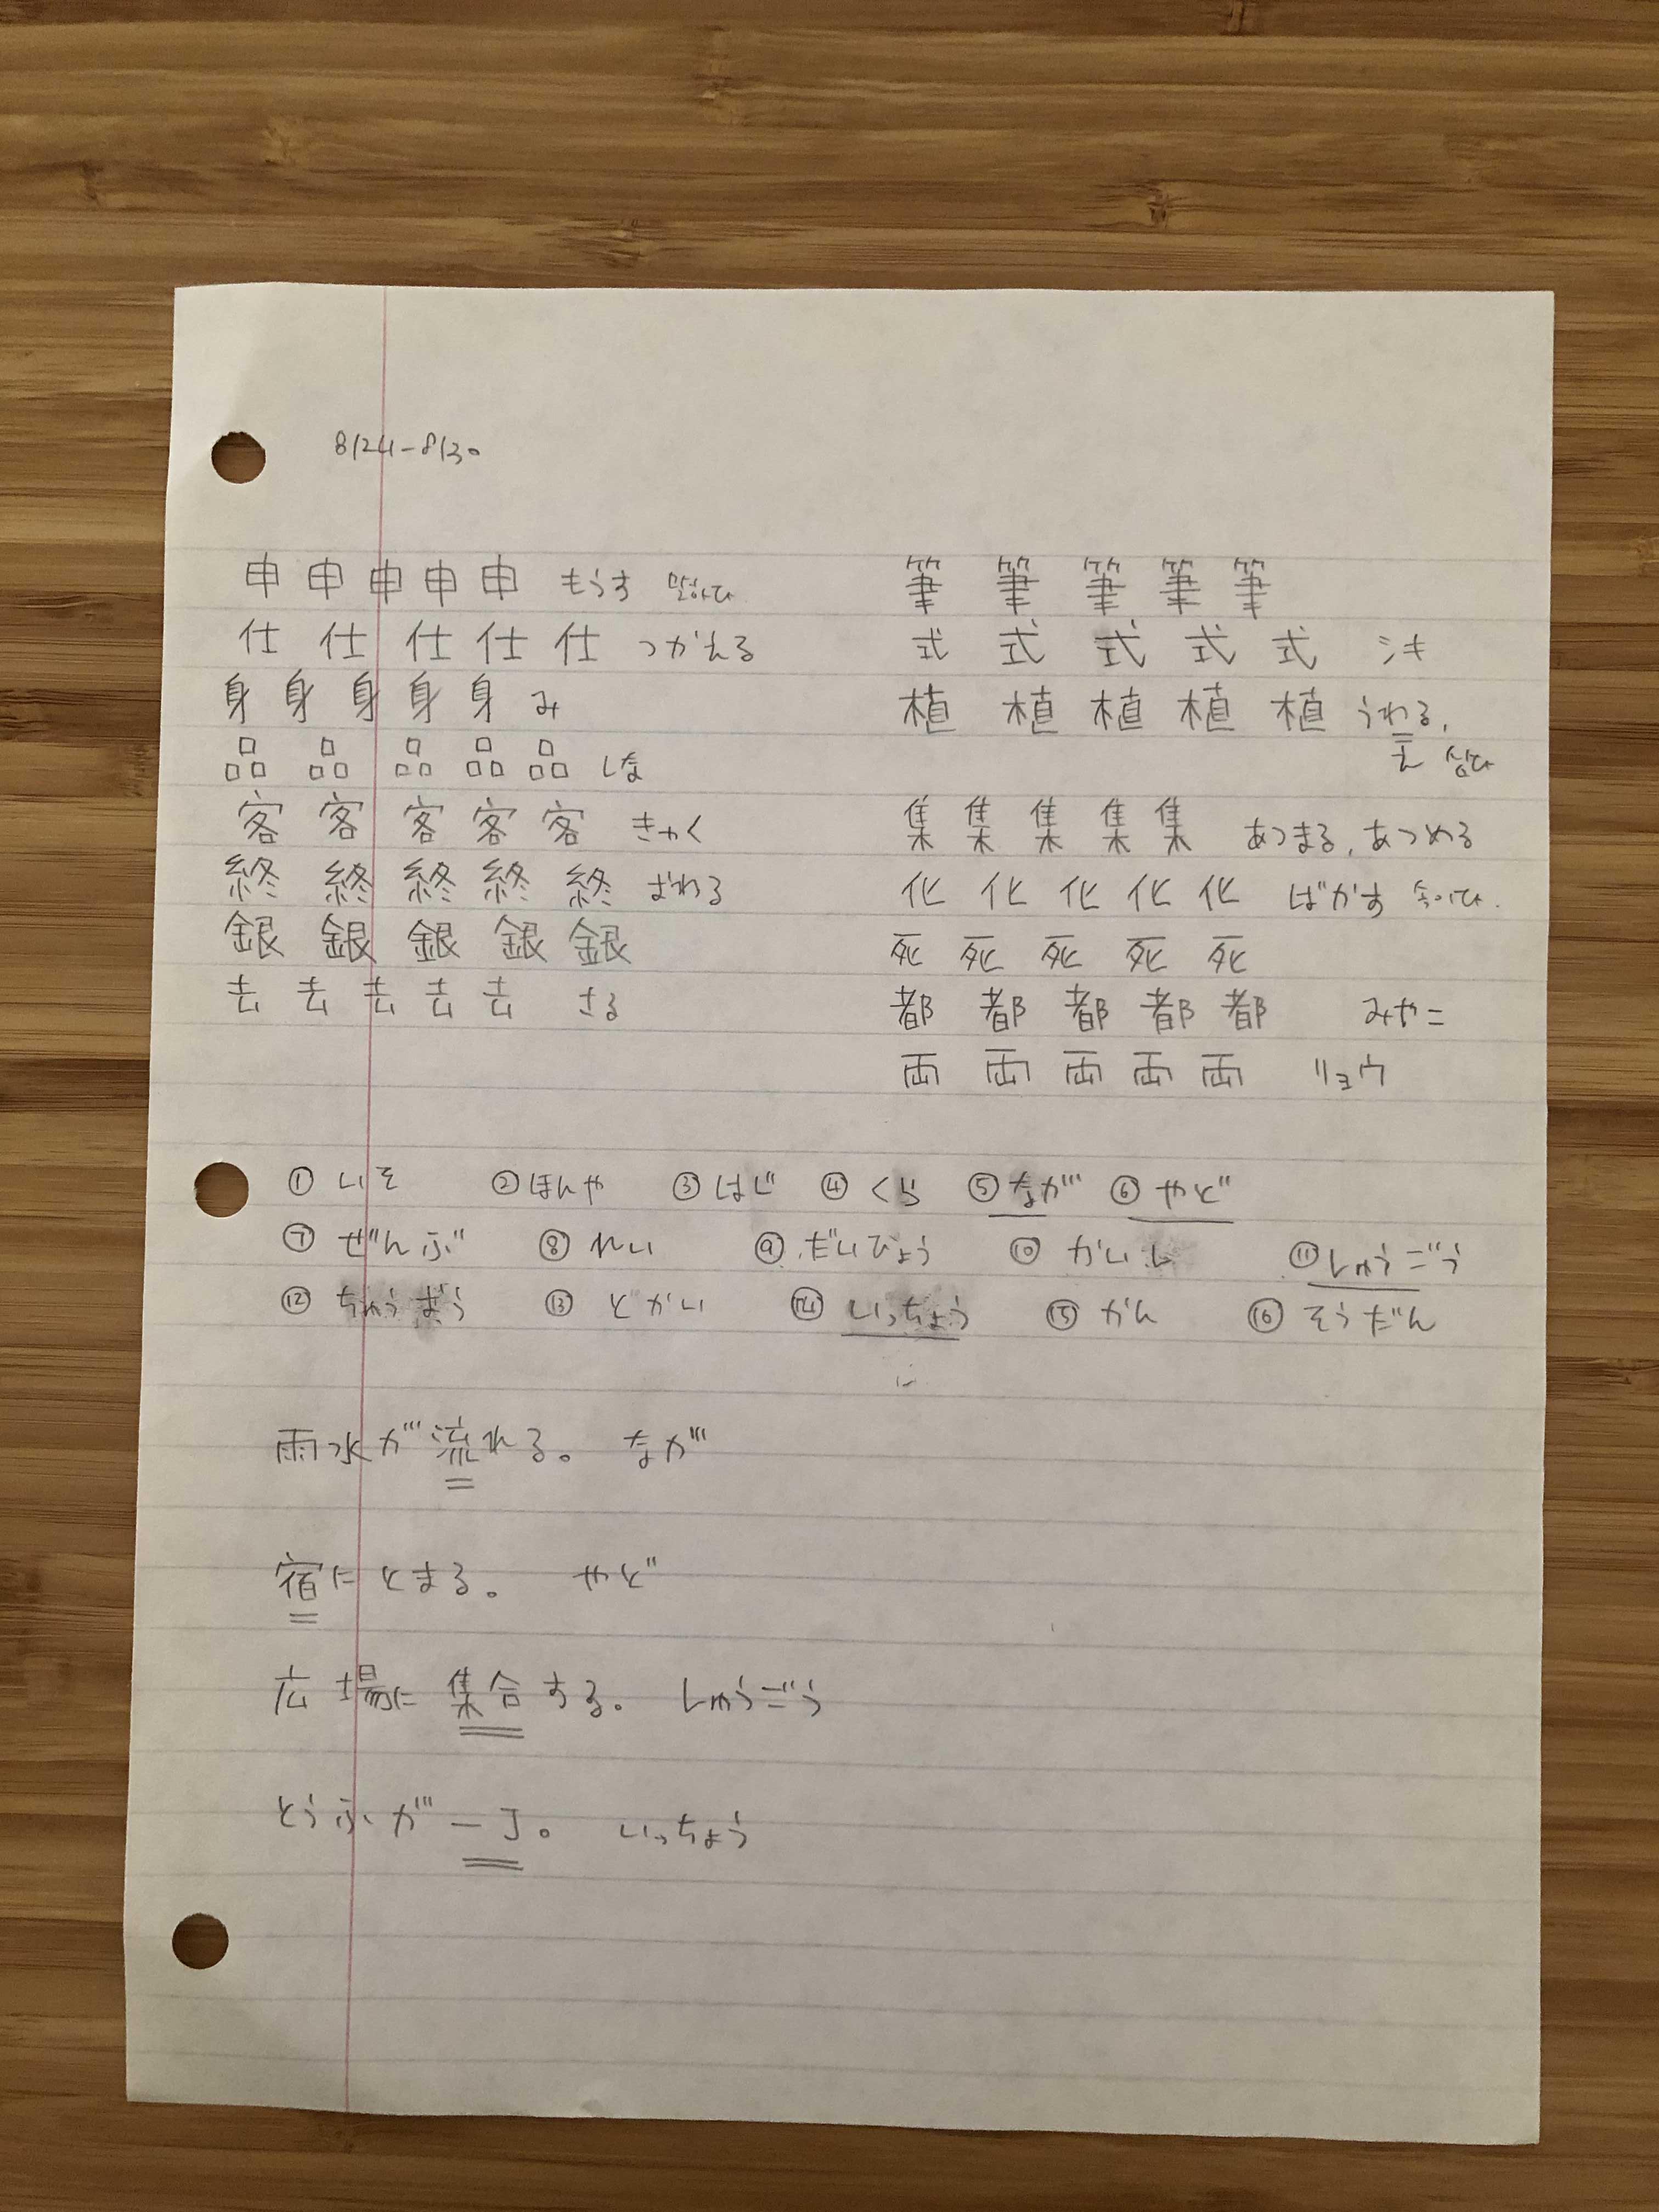 8/24-8/30
申 申 申 申 申 もうす 말하다
仕 仕 仕 仕 仕 つかえる
身 身 身 身 身 み
品 品 品 品 品 しな
客 客 客 客 客 きゃく
終 終 終 終 終 おわる
銀 銀 銀 銀 銀
去 去 去 去 去 さる
筆 筆 筆 筆 筆
式 式 式 式 式 シキ
植 植 植 植 植 うわる,
え 심다
集 集 集 集 集 あつまる, あつめる
化 化 化 化 化 ばかす
死 死 死 死 死
都 都 都 都 都 みやこ
両 両 両 両 両 リョウ
① いそ ② ほんや ③ はじ ④ くら ⑤ なが ⑥ やど
⑦ ぜんぶ ⑧ れい ⑨ だいひょう ⑩ かいし ⑪ しゅうごう
⑫ ちゅうおう ⑬ どかい ⑭ いっちょう ⑮ かん ⑯ そうだん
雨水が流れる。 なが
宿にとまる。 やど
広場に集合する。 しゅうごう
とうふが一丁。 いっちょう